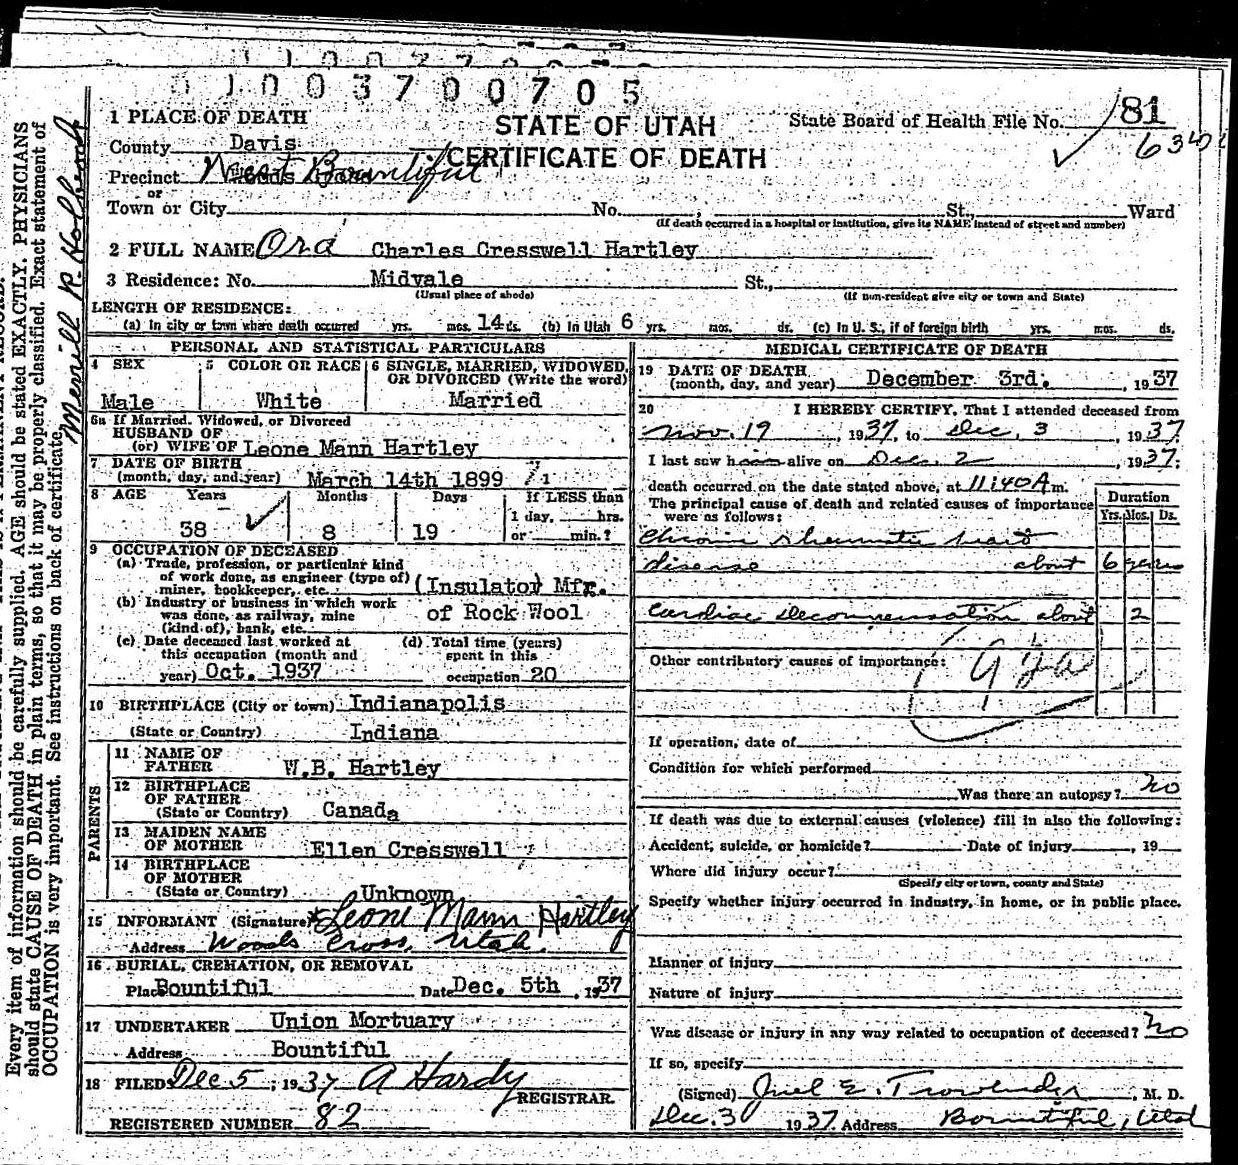 0 1 0 0 3 7 0 0 7 0 5
1 PLACE OF DEATH
STATE OF UTAH
CERTIFICATE OF DEATH
State Board of Health File No. 181
County Davis
Precinct West Bountiful
or
Town or City No. , St., Ward
(If death occurred in a hospital or institution, give its NAME instead of street and number)
2 FULL NAME Ora Charles Cresswell Hartley
3 Residence: No. Midvale St.,
(Usual place of abode) (If non-resident give city or town and State)
LENGTH OF RESIDENCE:
(a) In city or town where death occurred yrs. mos. 14 ds. (b) In Utah 6 yrs. mos. ds. (c) In U. S., if of foreign birth yrs. mos. ds.
PERSONAL AND STATISTICAL PARTICULARS
4 SEX 5 COLOR OR RACE 6 SINGLE, MARRIED, WIDOWED,
OR DIVORCED (Write the word)
Male White Married
6a If Married, Widowed, or Divorced
HUSBAND OF
(or) WIFE OF Leone Mann Hartley
7 DATE OF BIRTH
(month, day, and year) March 14th 1899
8 AGE Years Months Days If LESS than
1 day, hrs.
38 8 19 or min.?
9 OCCUPATION OF DECEASED
(a) Trade, profession, or particular kind
of work done, as engineer (type of)
miner, bookkeeper, etc. (Insulator) Mfg.
(b) Industry or business in which work
was done, as railway, mine of Rock Wool
(kind of), bank, etc.
(c) Date deceased last worked at (d) Total time (years)
this occupation (month and spent in this
year) Oct. 1937 occupation 20
10 BIRTHPLACE (City or town) Indianapolis
(State or Country) Indiana
PARENTS
11 NAME OF
FATHER W.B. Hartley
12 BIRTHPLACE
OF FATHER
(State or Country) Canada
13 MAIDEN NAME
OF MOTHER Ellen Cresswell
14 BIRTHPLACE
OF MOTHER
(State or Country) Unknown
15 INFORMANT (Signature) *Leone Mann Hartley
Address Woods Cross, Utah.
16 BURIAL, CREMATION, OR REMOVAL
Place Bountiful Date Dec. 5th , 1937
17 UNDERTAKER Union Mortuary
Address Bountiful
18 FILED Dec 5 , 1937 A Hardy
REGISTRAR.
REGISTERED NUMBER 82
MEDICAL CERTIFICATE OF DEATH
19 DATE OF DEATH
(month, day, and year) December 3rd. , 1937
20 I HEREBY CERTIFY, That I attended deceased from
Nov. 19 , 1937, to Dec. 3 , 1937.
I last saw him alive on Dec. 2 , 1937;
death occurred on the date stated above, at 11:40 A m.
The principal cause of death and related causes of importance
were as follows:
Duration
Yrs. Mos. Ds.
Chronic rheumatic heart
disease about 6 years
Cardiac decompensation about 2
Other contributory causes of importance:
If operation, date of
Condition for which performed
Was there an autopsy? no
If death was due to external causes (violence) fill in also the following:
Accident, suicide, or homicide? Date of injury , 19
Where did injury occur?
(Specify city or town, county and State)
Specify whether injury occurred in industry, in home, or in public place.
Manner of injury
Nature of injury
Was disease or injury in any way related to occupation of deceased? no
If so, specify
(Signed) , M. D.
1937 Address Bountiful, Utah
Every item of information should be carefully supplied. AGE should be stated EXACTLY. PHYSICIANS
should state CAUSE OF DEATH in plain terms, so that it may be properly classified. Exact statement of
OCCUPATION is very important. See instructions on back of certificate.